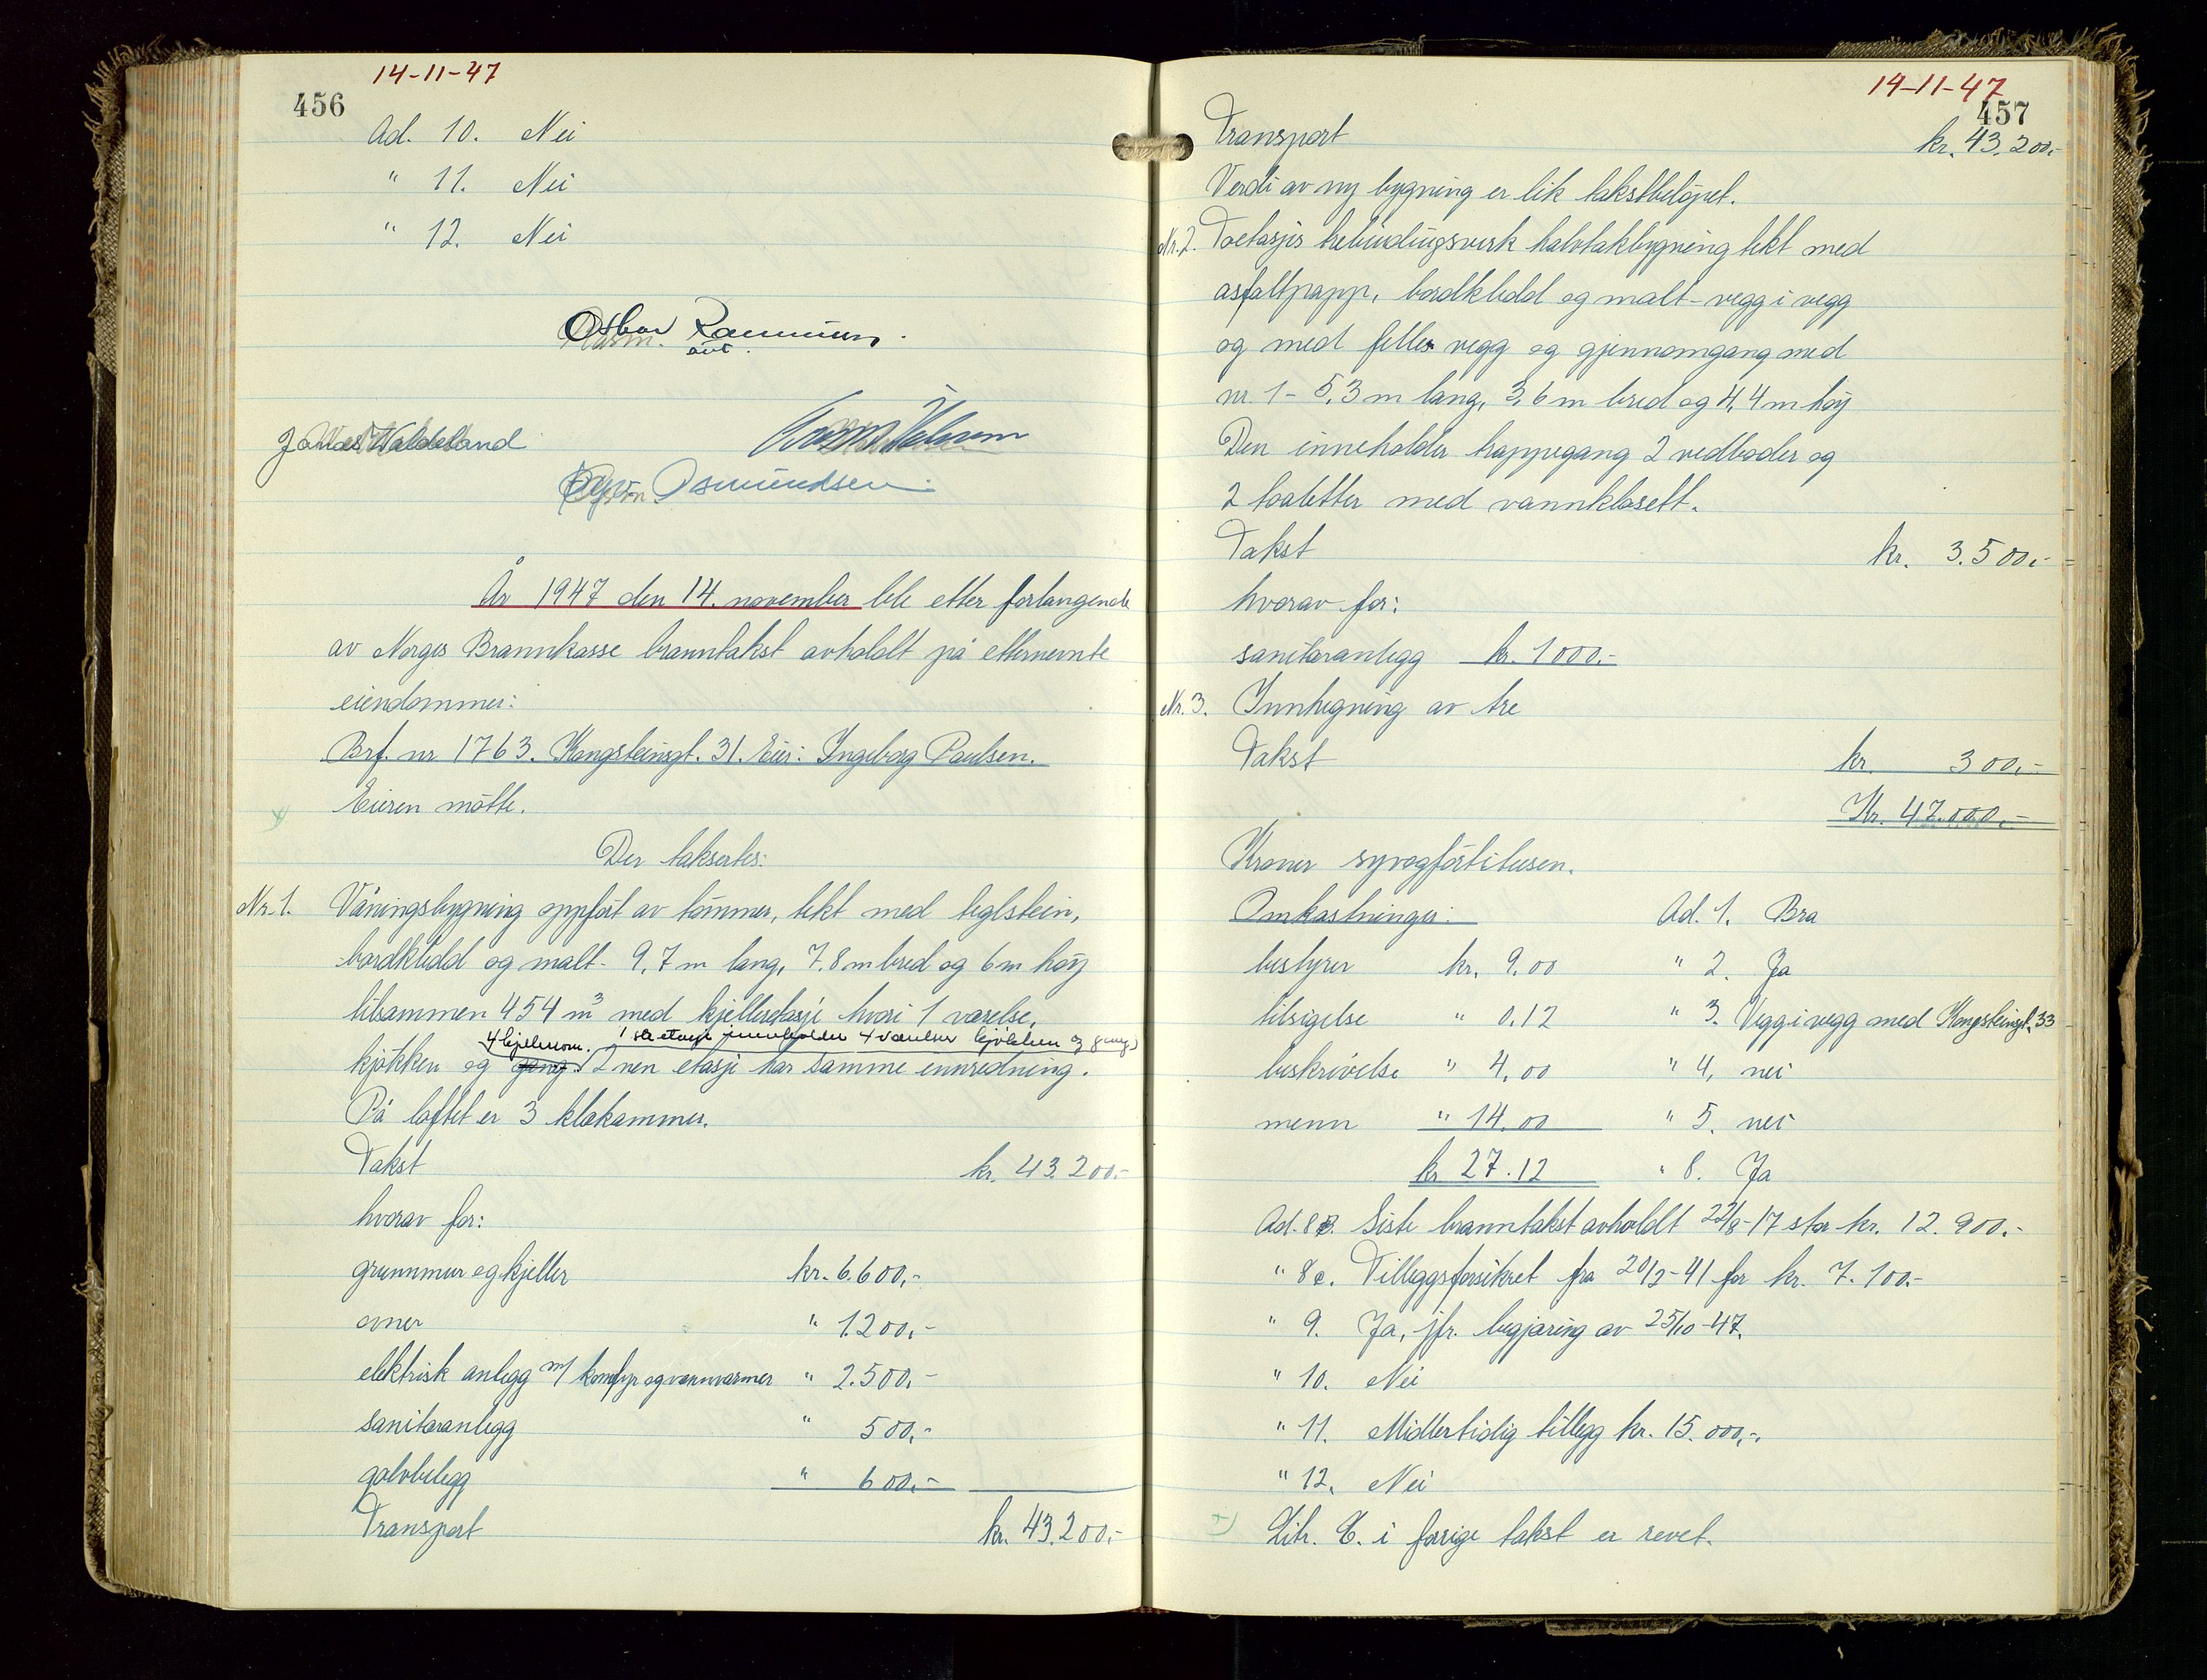 14-11-47
456
Ad. 10. Nei
" 11. Nei
" 12. Nei
Oskar Rasmussen.
Jonas Waldeland
Asmundsen
År 1947 den 14. november ble etter forlangende
av Norges Brannkasse branntakst avholdt på etternevnte
eiendommer:
Brf. nr 1763. Kongsteinsgt. 31. Eier: Ingeborg Paulsen.
Eieren møtte.
Der taksertes:
Nr. 1. Våningsbygning oppført av tømmer, tekt med teglstein,
bordkledd og malt - 9,7 m lang, 7,8 m bred og 6 m høy
tilsammen 454 m³ med kjelleretasje hvori 1 værelse,
4 kjellerrom. 1ste etasje inneholder 4 værelser kjøkken og gang,
kjøkken og gang. 2nen etasje har samme innredning.
På loftet er 3 kløkammer.
Takst kr. 43.200.-
hvorav for:
grunnmur og kjeller kr. 6.600,-
ovner " 1.200,-
elektrisk anlegg m/ komfyr og vannvarmer " 2.500,-
sanitæranlegg " 500,-
golvbelegg " 600,-
Transport kr. 43.200,-
14-11-47
457
Transport kr. 43.200,-
Verdi av ny bygning er lik takstbeløpet.
Nr. 2. Toetasjes trebindingsverk halvtakbygning tekt med
asfaltpapp, bordkledd og malt - vegg i vegg
og med felles vegg og gjennomgang med
nr. 1 - 5,3 m lang, 3,6 m bred og 4,4 m høy
Den inneholder trappegang 2 vedboder og
2 toaletter med vannklosett.
Takst kr. 3.500,-
hvorav for:
sanitæranlegg kr. 1000,-
Nr. 3. Innhegning av tre
Takst kr. 300,-
Kr. 47.000,-
Kroner syvogførtitusen.
Omkostninger: Ad. 1. Bra
bestyrer kr. 9.00 " 2. Ja
tilsigelse " 0.12 " 3. Vegg i vegg med Kongsteinsgt. 33
beskrivelse " 4,00 " 4, nei
menn " 14.00 " 5. nei
kr 27.12 " 8. Ja
Ad. 8 B. Siste branntakst avholdt 22/8-17 stor kr. 12.900.-
" 8 c. Tilleggsforsikret fra 20/2-41 for kr. 7.100.-
" 9. Ja, jfr. begjæring av 25/10-47.
" 10. Nei
" 11. Midlertidig tillegg kr. 15.000,-.
" 12. Nei
Litr. C. i forrige takst er revet.